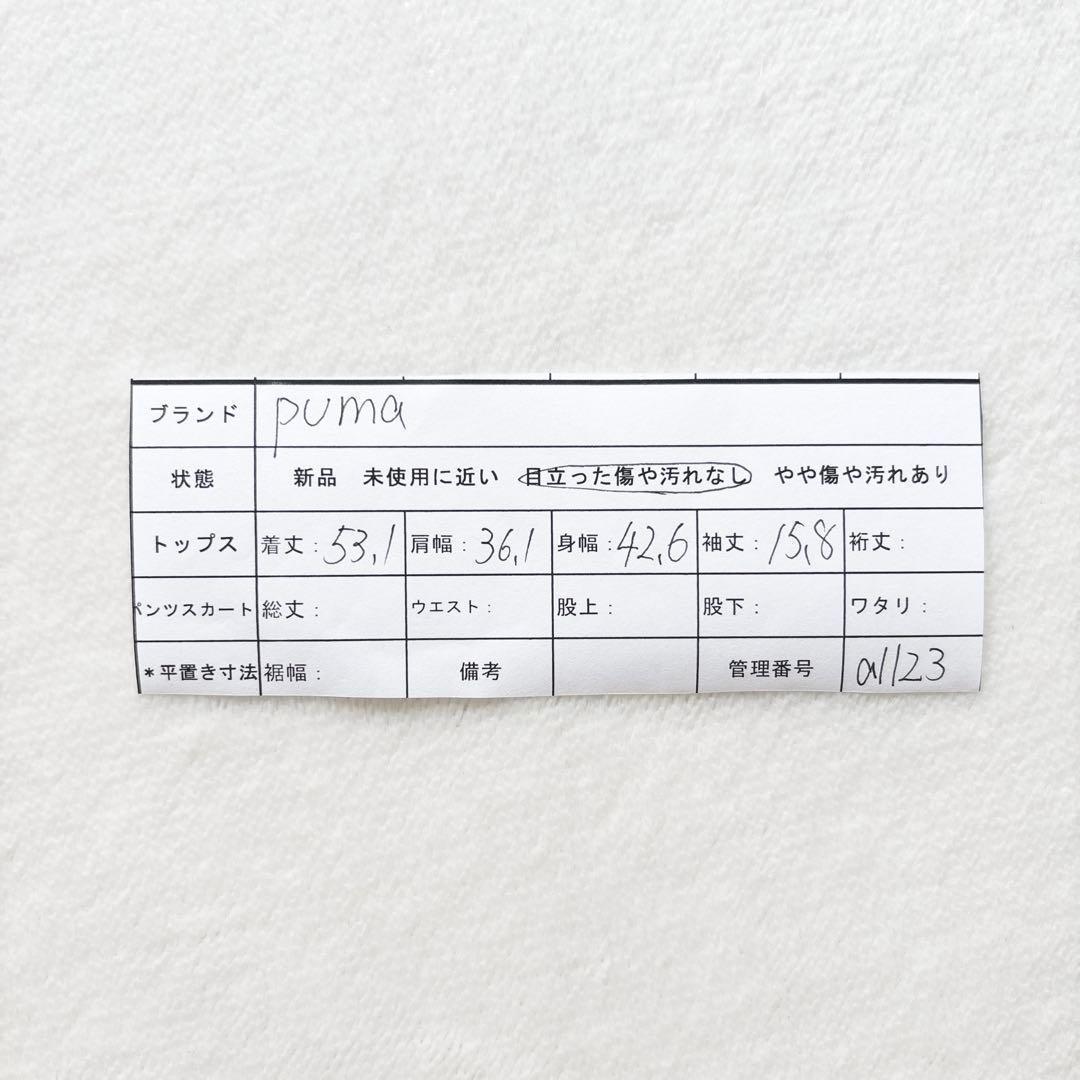 ブランド puma
状態 新品 未使用に近い 目立った傷や汚れなし やや傷や汚れあり
トップス 着丈：53,1 肩幅：36,1 身幅：42,6 袖丈：15,8 裄丈：
パンツスカート 総丈： ウエスト： 股上： 股下： ワタリ：
*平置き寸法 裾幅： 備考 管理番号 a1123